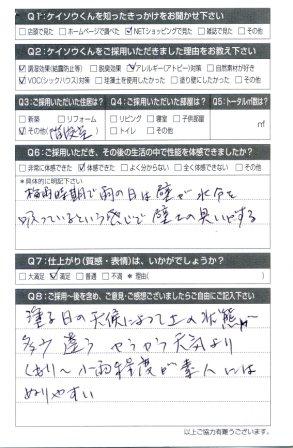 Q1：ケイソウくんを知ったきっかけをお聞かせ下さい
□店頭で見た □ホームページで調べた ☑NETショッピングで見た □雑誌で見た □その他
Q2：ケイソウくんをご採用いただきました理由をお教え下さい
☑調湿効果(結露防止等) □脱臭効果 ☑アレルギー(アトピー)対策 □自然素材が好き
☑VOC(シックハウス)対策 □珪藻土を使用したかった □塗り壁にしたかった □その他
Q3：ご採用いただいた住居は？ Q4：ご採用いただいた部屋は？ Q5：トータル㎡数は？
□新築 □リフォーム □リビング □寝室 □子供部屋 ㎡
☑その他( ) □トイレ □その他
Q6：ご採用いただき、その後の生活の中で性能を体感できましたか？
□非常に体感できた ☑体感できた □よく分からない □全く体感できない □その他
*具体的に明記下さい
梅雨時期で雨の日は壁が水分を
吸っているという感じで壁土の臭いがする
Q7：仕上がり(質感・表情)は、いかがでしょうか？
□大満足 ☑満足 □普通 □不満 *理由( )
Q8：ご採用〜後を含め、ご意見・ご感想ございましたらご自由にご記入下さい
塗る日の天候によって土の状態が
多少違う 天気より
くもり〜小雨程度が素人には
ぬりやすい
以上ご協力有難うございます。